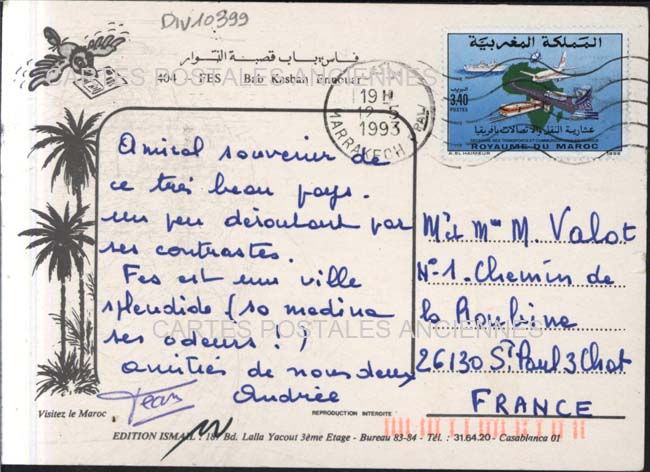 Div10399
فاس، باب قصبة النوار
404 FES Bab Kasbah Ennouar
CARTES POSTALES ANCIENNES
19H
12-5
1993
MARRAKECH
المملكة المغربية
البريد
3,40
POSTES
عشارية النقل والاتصالات بإفريقيا
ROYAUME DU MAROC
Amical souvenir de
ce très beau pays.
un peu déroutant par
ses contrastes.
Fes est une ville
splendide (sa medina
ses odeurs !)
amitiés de nous deux
Andrée
Jean
Mr et Mme M. Valot
N°1. Chemin de
la Roubine
26130 St Paul 3 Chat
FRANCE
CARTES POSTALES ANCIENNES
Visitez le Maroc
REPRODUCTION INTERDITE
EDITION ISMAIL : Bd. Lalla Yacout 3ème Etage - Bureau 83-84 - Tél. : 31.64.20 - Casablanca 01